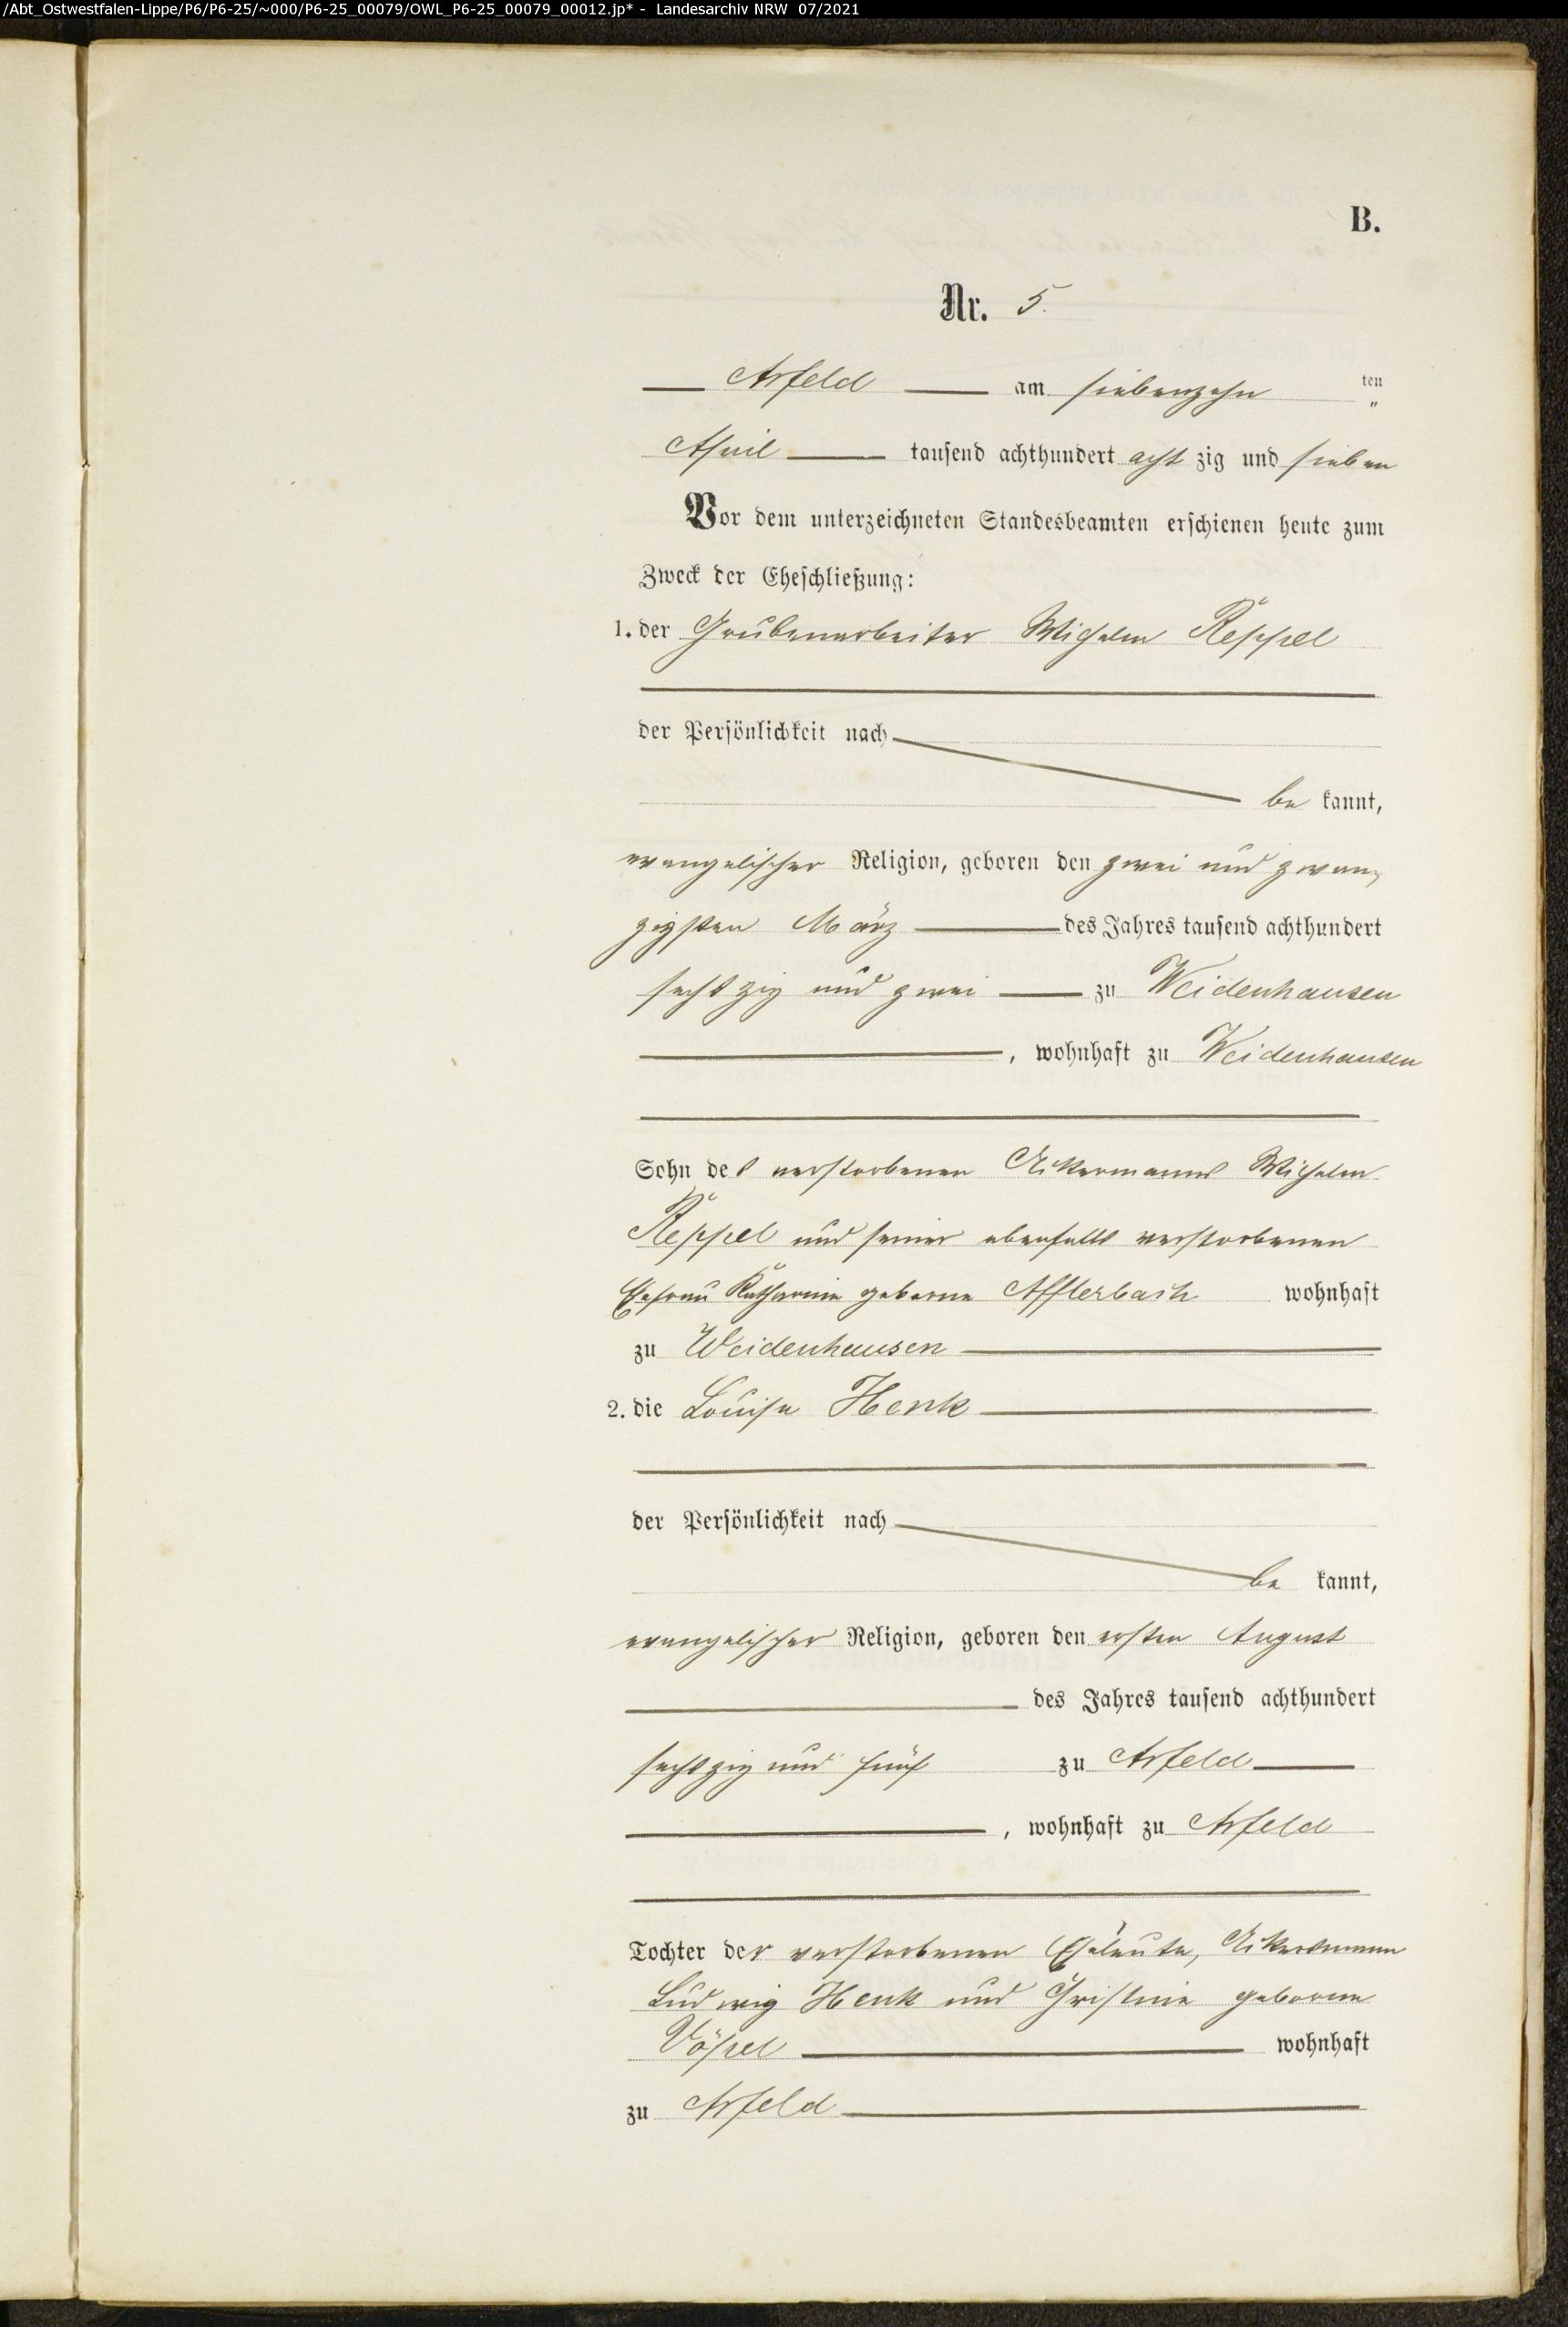 /Abt_Ostwestfalen-Lippe/P6/P6-25/~000/P6-25_00079/OWL_P6-25_00079_00012.jp* - Landesarchiv NRW 07/2021
B.
Nr. 5.
Arfeld am siebenzehn ten
April tausend achthundert acht zig und sieben
Vor dem unterzeichneten Standesbeamten erschienen heute zum
Zweck der Eheschließung:
1. der Grubenarbeiter Wilhelm Reppel
der Persönlichkeit nach
be kannt,
evangelischer Religion, geboren den zwei und zwan
zigsten März des Jahres tausend achthundert
sechszig und zwei zu Weidenhausen
, wohnhaft zu Weidenhausen
Sohn des verstorbenen Ackermanns Wilhelm
Reppel und seiner ebenfalls verstorbenen
Ehefrau Katharine geborne Afflerbach wohnhaft
zu Weidenhausen
2. die Louise Henk
der Persönlichkeit nach
be kannt,
evangelischer Religion, geboren den ersten August
des Jahres tausend achthundert
sechszig und fünf zu Arfeld
, wohnhaft zu Arfeld
Tochter der verstorbenen Eheleute, Ackersmann
Ludwig Henk und Christine geborne
Vöpel wohnhaft
zu Arfeld